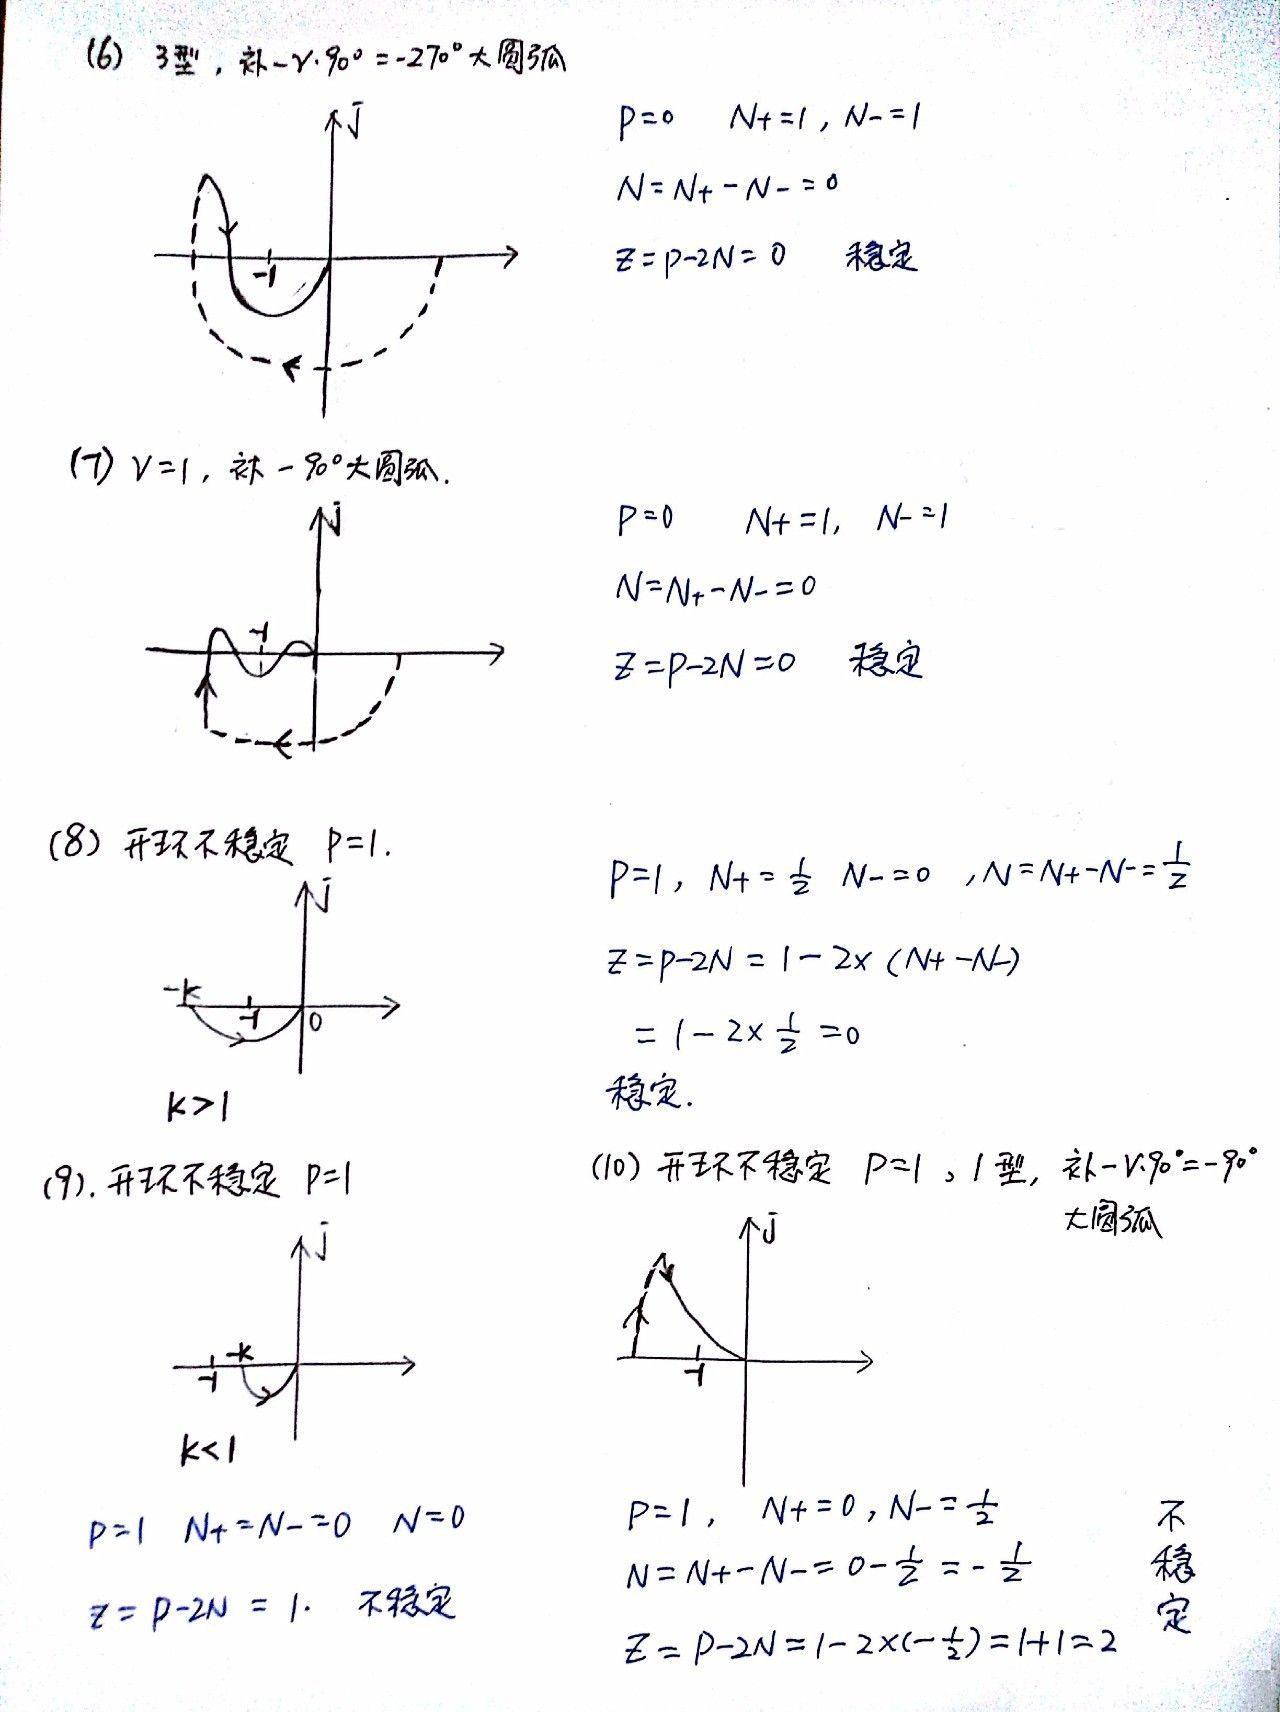 (6) 3型，补-ν·90°=-270°大圆弧
j
-1
P=0 N+=1，N-=1
N=N+-N-=0
Z=P-2N=0 稳定
(7) ν=1，补-90°大圆弧.
j
-1
P=0 N+=1, N-=1
N=N+-N-=0
Z=P-2N=0 稳定
(8) 开环不稳定 P=1.
j
-k
-1
0
k>1
P=1, N+=1/2 N-=0 ,N=N+-N-=1/2
Z=P-2N=1-2×(N+-N-)
=1-2×1/2=0
稳定.
(9). 开环不稳定 P=1
j
-k
-1
k<1
P=1 N+=N-=0 N=0
Z=P-2N=1. 不稳定
(10) 开环不稳定 P=1、1型, 补-ν·90°=-90°
大圆弧
j
-1
P=1, N+=0, N-=1/2
N=N+-N-=0-1/2=-1/2
Z=P-2N=1-2×(-1/2)=1+1=2
不
稳
定